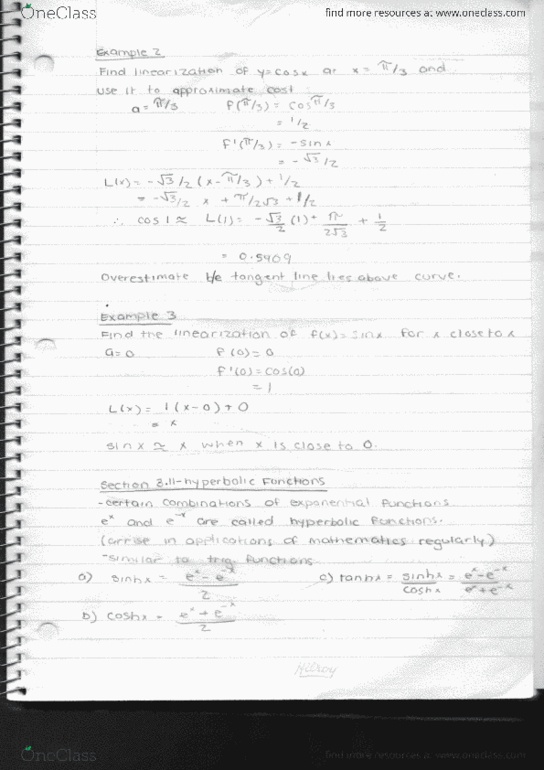 OneClass
find more resources at www.oneclass.com
Example 2
Find linearization of y=cosx at x = π/3 and
use it to approximate cos1
a = π/3 f(π/3) = cos π/3
= 1/2
f'(π/3) = -sin x
= -√3/2
L(x) = -√3/2 (x - π/3) + 1/2
= -√3/2 x + π/2√3 + 1/2
∴ cos 1 ≈ L(1) = -√3/2 (1) + π/2√3 + 1/2
= 0.5409
Overestimate b/c tangent line lies above curve.
Example 3
Find the linearization of f(x)=sinx for x close to x
a=0 f(0)=0
f'(0)=cos(0)
= 1
L(x) = 1(x-0)+0
= x
sin x ≈ x when x is close to 0.
Section 3.11-hyperbolic Functions
-certain combinations of exponential functions
e^x and e^-x are called hyperbolic functions.
(arrise in applications of mathematics regularly)
-similar to trig functions
a) sinhx = e^x - e^-x / 2 c) tanhx = sinhx / coshx = e^x - e^-x / e^x + e^-x
b) coshx = e^x + e^-x / 2
Hilroy
OneClass
find more resources at www.oneclass.com